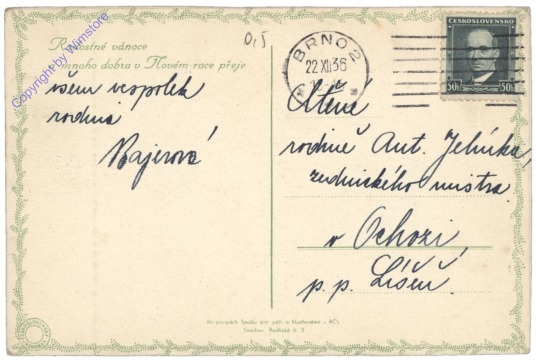 Radostné vánoce
mnoho dobra v Novém roce přeje
všem vespolek
rodina
Bajerová
0,5
BRNO 2
22 XII 36
ČESKOSLOVENSKO
50h 50h
Ctěné
rodině Ant. Jelínka,
zednického mistra
v Ochozi,
p. p. Líšeň.
Ve prospěch Spolku pro péči o
Smíchov, Radlická č. 5
Copyright by Wimstore